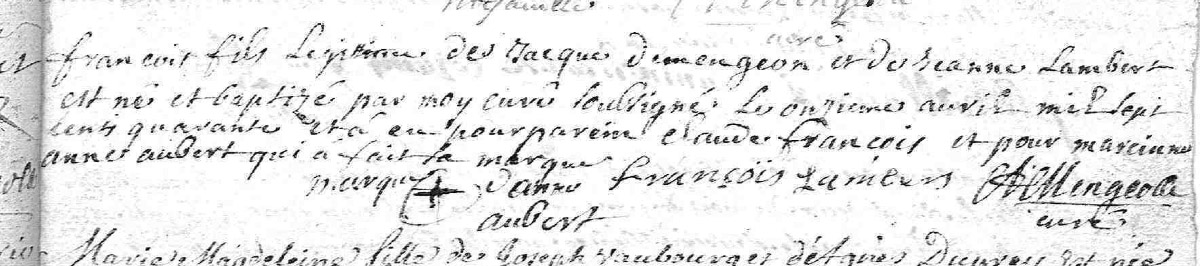 curé
françois fils Legitime de Jacque demengeon et de Jeanne Lambert
est né et baptizé par moy curé soubsigné Le onzieme avril mil sept
cents quarante et à eu pour parein claude françois et pour mareinne
anne aubert qui à fait sa marque
marque d'anne françois Lambert
aubert curé
Marie Magdeleine fille de Joseph vaubourg et d'Agnés est née